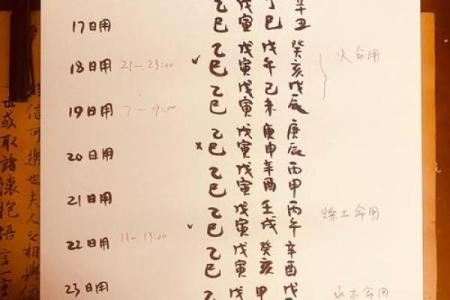 乙 戊 丁 辛
17日用 巳 寅 巳 丑
乙 戊 戊 癸
18日用 21-23:00 ✓ 巳 寅 午 亥 火命用
乙 戊 己 戊
19日用 7-9:00 巳 寅 未 辰
乙 戊 庚 庚
20日用 × 巳 寅 申 辰
乙 戊 辛 丙
21日用 巳 寅 酉 申
乙 戊 壬 丙
22日用 11-13:00 ✓ 巳 寅 戌 午 燥土命用
乙 戊 癸 辛
巳 寅 亥 酉
23日用 乙 戊 甲 戊 水木命用
信可樂也夫人之相與
或取諸懷抱悟言一